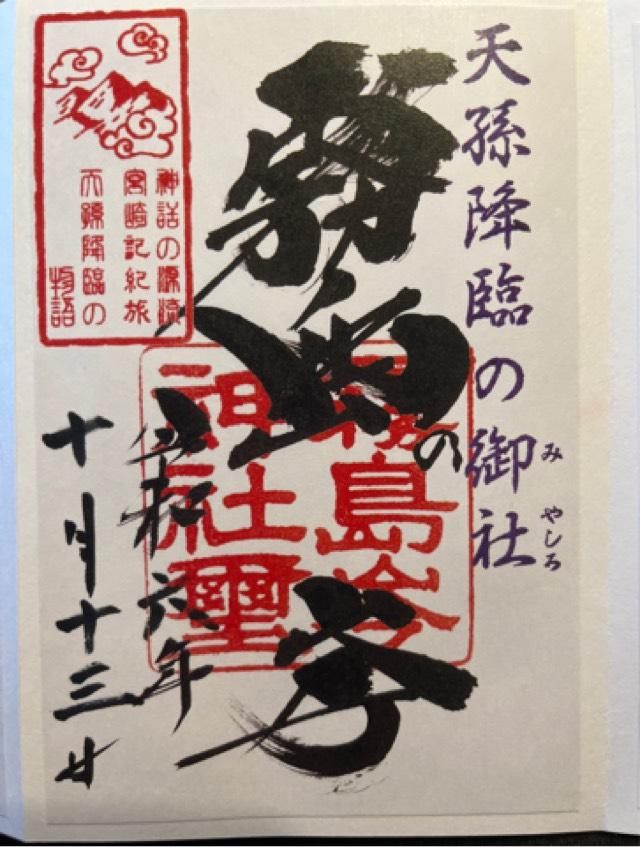 天孫降臨の御社
みやしろ
霧島の
霧島岑
神社璽
令和六年
十月十三日
神話の源流
宮崎記紀旅
天孫降臨の
物語